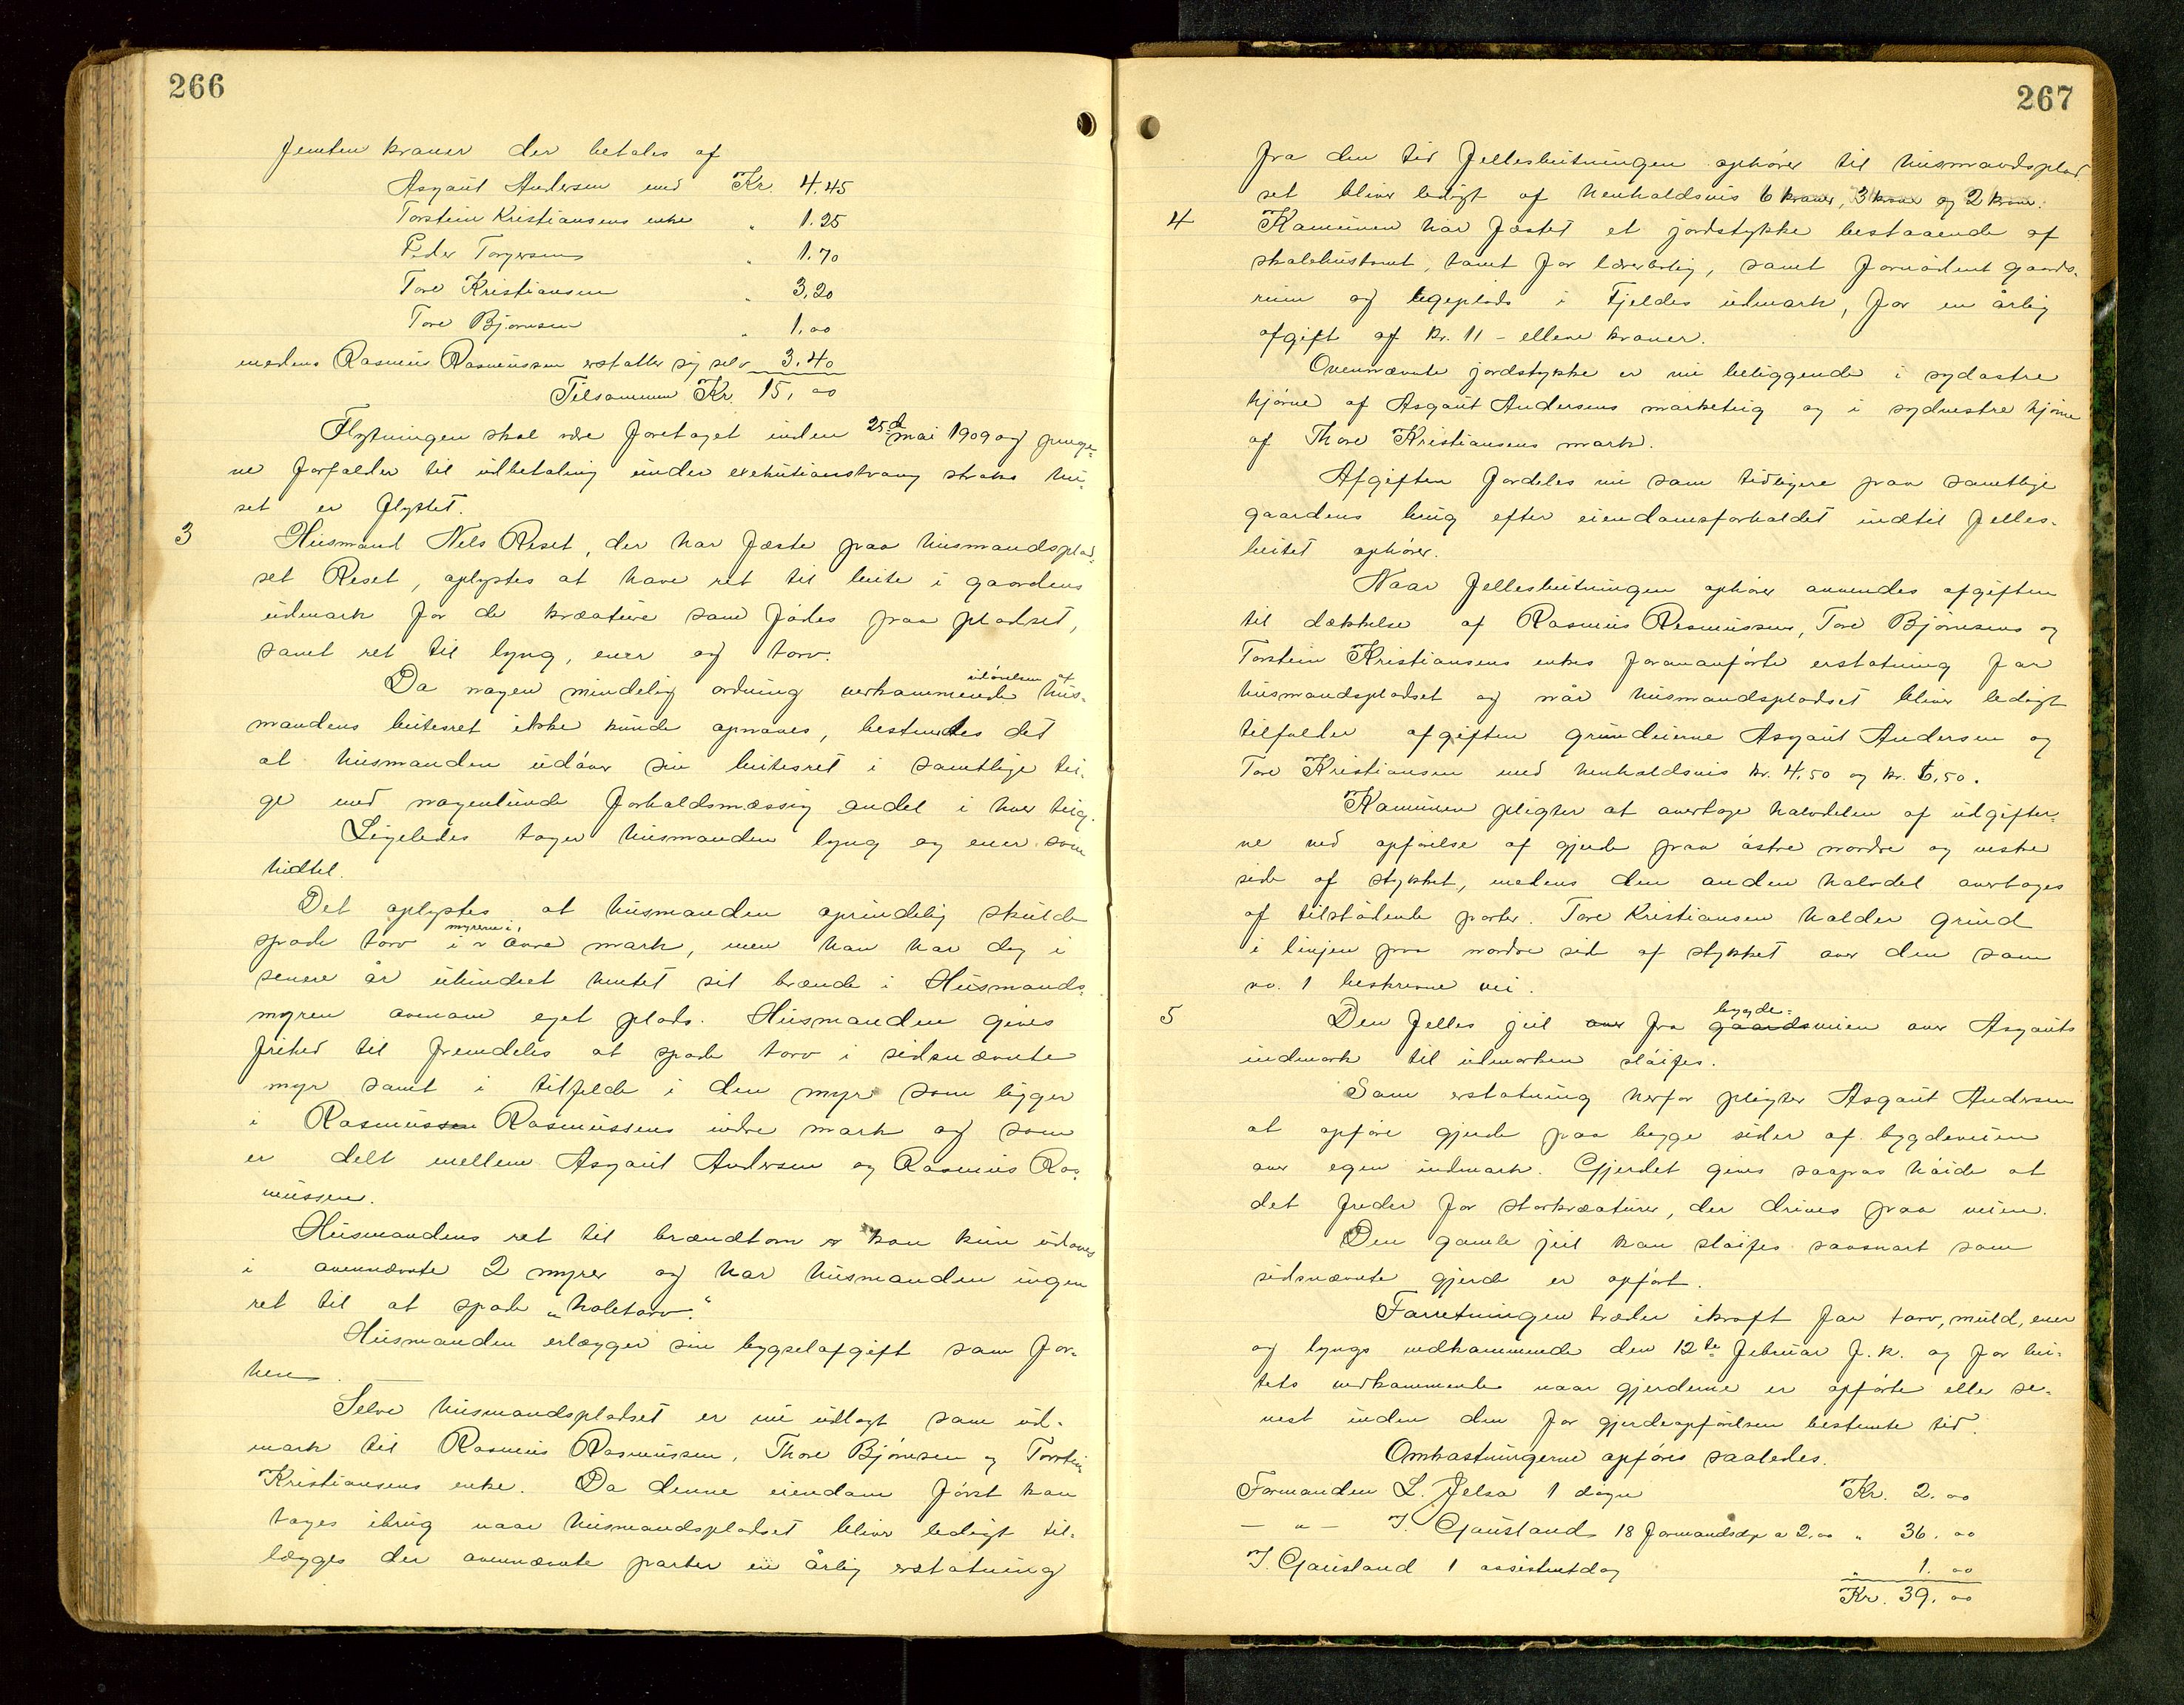 266
femten kroner der betales af
Asgaut Andersen med Kr. 4.45
Torstein Kristiansens enke " 1.25
Peder Torgersen " 1.70
Tore Kristiansen " 3,20
Tore Bjørnsen " 1,00
medens Rasmus Rasmussen erstatter sig selv 3.40
Tilsammen Kr. 15,00
Flytningen skal være foretaget inden 25d mai 1909 og penge-
ne forfalder til udbetaling under exekutionstvang straks hu-
set er flyttet.
3 Husmand Nels Reset, der har fæste paa husmandsplad-
set Reset, oplystes at have ret til beite i gaardens
udmark for de kreature som fødes paa pladset,
samt ret til lyng, ener og torv.
Da nogen mindelig ordning vedkommende udøvelsen af hus-
mandens beitesret ikke kunde opnaaes, bestemtes det
at husmanden udøver sin beitesret i samtlige tei-
ge med nogenlunde forholdsmæssig andel i hver teig.
Ligeledes tager husmanden lyng og ener som
hidtil.
Det oplystes at husmanden oprindelig skulde
spade torv i myrerne i øvre mark, men han har dog i
senere år uhindret hentet sit brænde i Husmands-
myren ovenom eget plads. Husmanden gives
frihed til fremdeles at spade torv i sidsnævnte
myr samt i tilfelde i den myr som ligger
i Rasmussen Rasmussens indre mark og som
er delt mellem Asgaut Andersen og Rasmus Ras-
mussen.
Husmandens ret til brændtorv er kan kun udøves
i ovennævnte 2 myrer og har husmanden ingen
ret til at spade "holetorv".
Husmanden erlægger sin bygselafgift som for-
hen.
Selve husmandspladset er nu udlagt som ud-
mark til Rasmus Rasmussen, Thore Bjørnsen og Torstein
Kristiansens enke. Da denne eiendom først kan
tages ibrug naar husmandspladset bliver ledigt til-
lægges der ovennævnte parter en årlig erstatning
267
fra den tid fellesbeitningen ophører til husmandsplad-
set bliver ledigt af henholdsvis 6 kroner, 3 krone og 2 krone.
4 Kommunen har fæstet et jordstykke bestaaende af
skolehustomt, tomt for lærerbolig, samt fornødent gaards-
rum og legeplads i Fjeldes udmark, for en årlig
afgift af kr. 11 - elleve kroner.
Ovennævnte jordstykke er nu beliggende i sydøstre
hjørne af Asgaut Andersens marketeig og i sydvestre hjørne
af Thore Kristiansens mark.
Afgiften fordeles nu som tidligere paa samtlige
gaardens brug efter eiendomsforholdet indtil felles-
beitet ophører.
Naar fellesbeitningen ophører anvendes afgiften
til dækkelse af Rasmus Rasmussens, Tore Bjørnsens og
Torstein Kristiansens enkes forananførte erstatning for
husmandspladset og når husmandspladset bliver ledigt
tilfalder afgiften grundeierne Asgaut Andersen og
Tore Kristiansen med henholdsvis kr. 4,50 og kr. 6,50.
Kommunen pligter at overtage halvdelen af udgifter-
ne ved opførelse af gjerde paa østre nordre og vestre
side af stykket, medens den anden halvdel overtages
af tilstødende parter. Tore Kristiansen holder grind
i linjen paa nordre side af stykket over den som
no. 1 beskrevne vei.
5 Den felles jeil over fra gaardsveien bygde- over Asgauts
indmark til udmarken sløifes.
Som erstatning herfor pligter Asgaut Andersen
at opføre gjerde paa begge sider af bygdeveien
over egen indmark. Gjerdet gives saapas høide at
det freder for storkreaturer, der drives paa veien.
Den gamle jeil kan sløifes saasnart som
sidsnævnte gjerde er opført.
Forretningen træder ikraft for torv, muld, ener
og lyngs vedkommende den 12te februar f. k. og for bei-
tets vedkommende naar gjerderne er opførte eller se-
nest inden den for gjerdeopførelsen bestemte tid.
Omkostningerne opføres saaledes.
Formanden L. Jelsa 1 dage Kr. 2.00
— " — T. Gausland 18 formandsdge a 2.00 " 36.00
T. Gausland 1 assistentdag " 1.00
Kr. 39.00